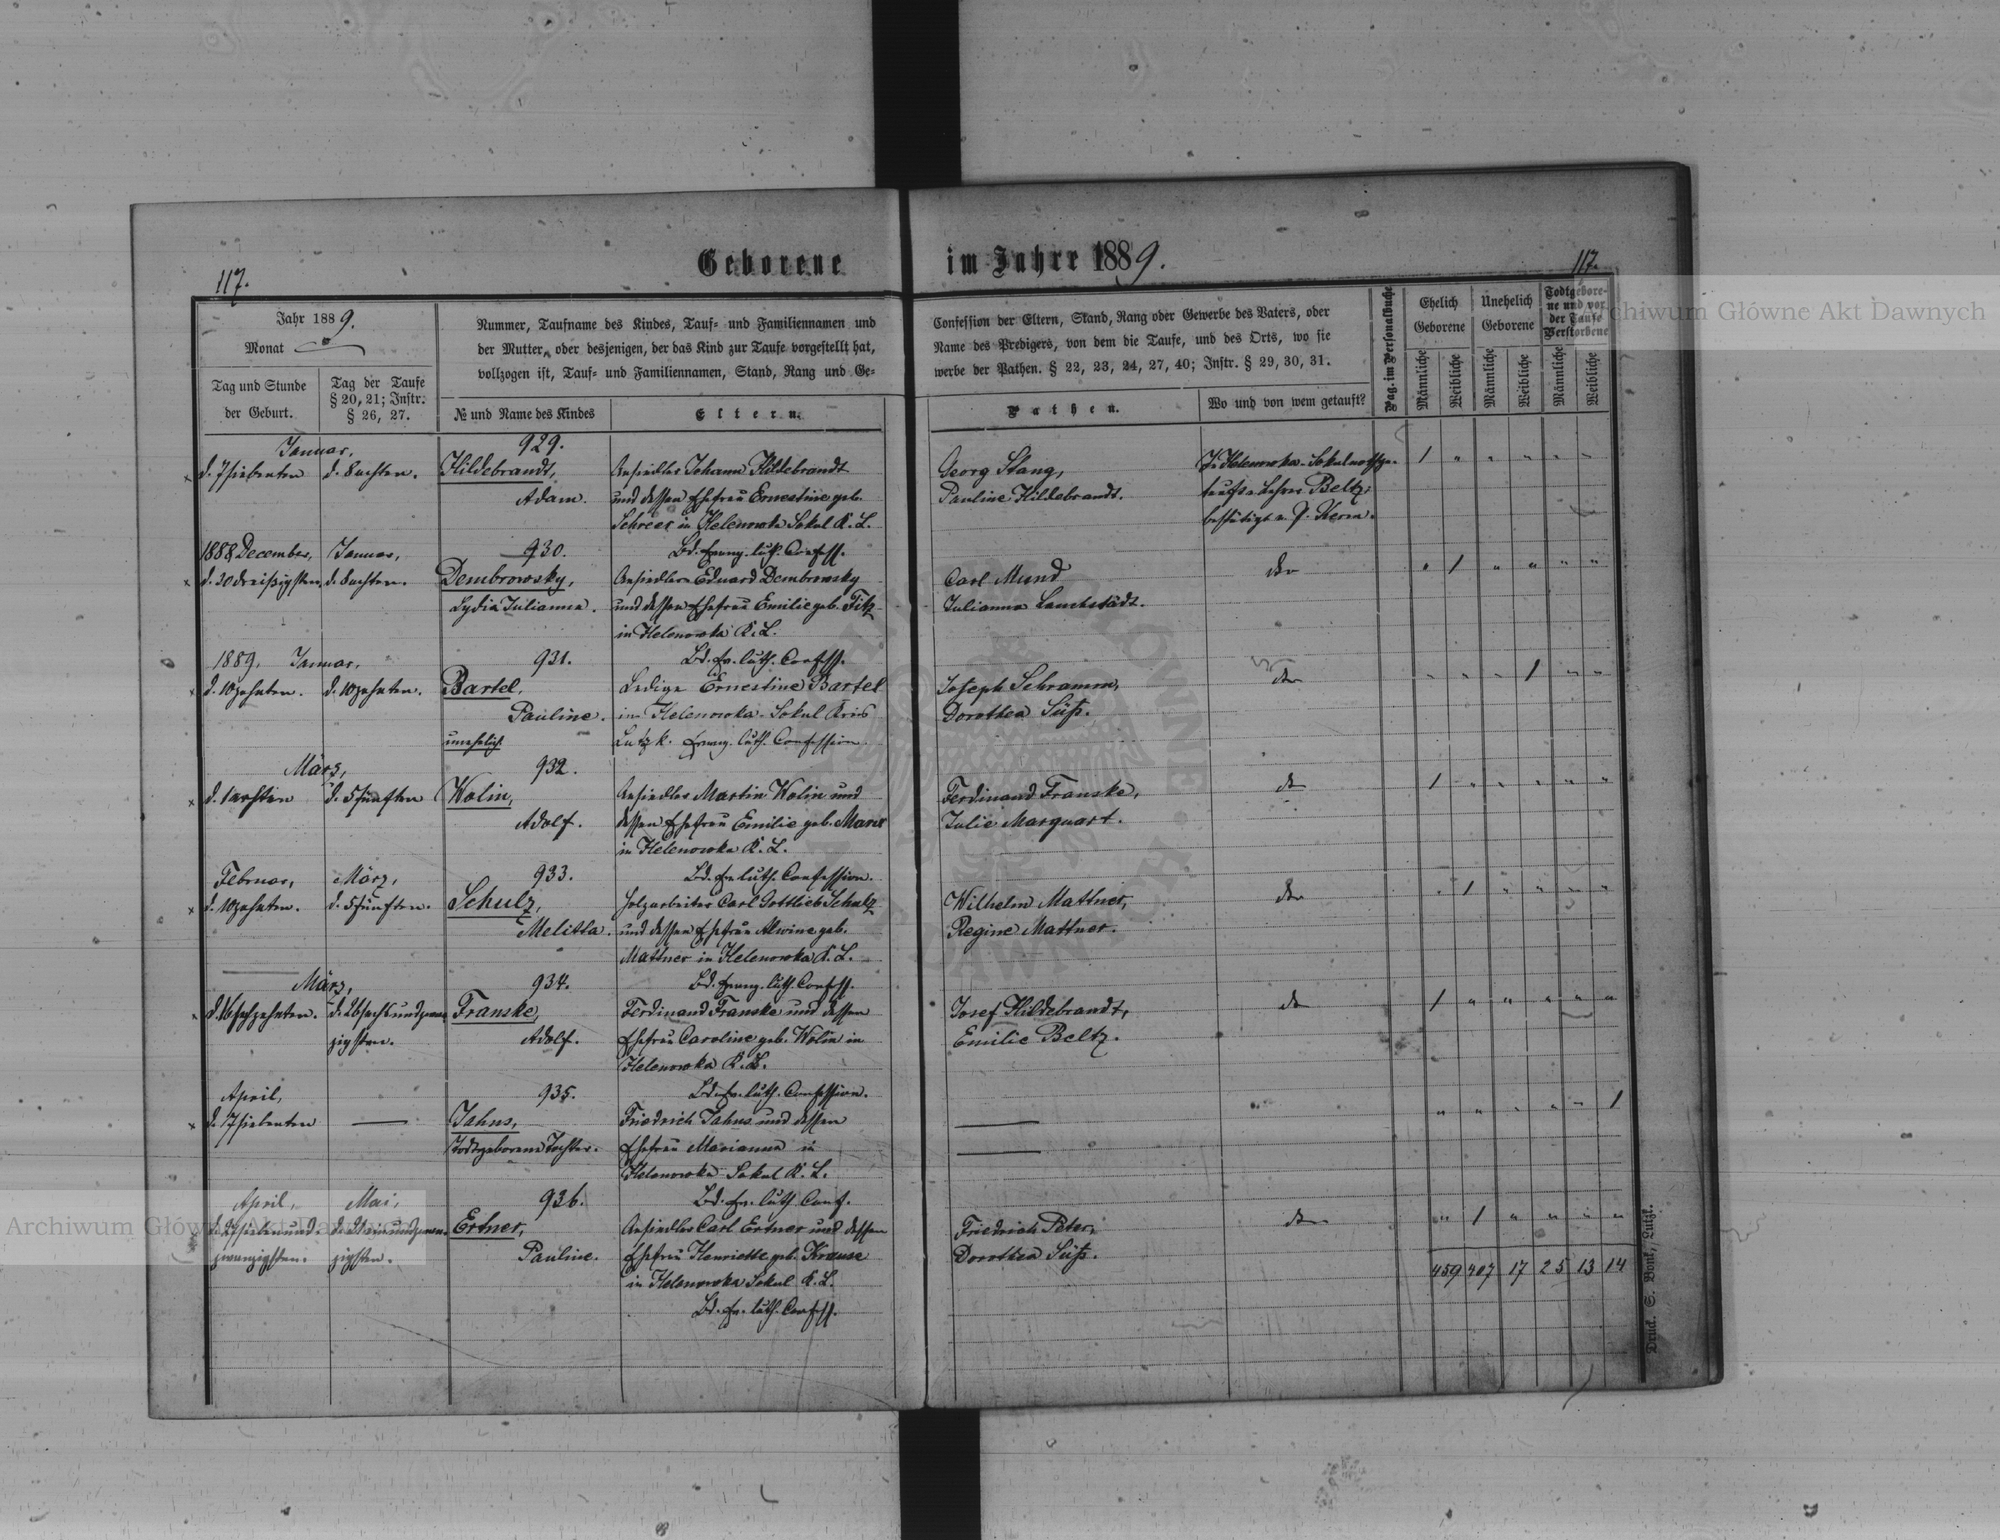 Geborene im Jahre 1889.
117.
117.
Jahr 1889.
Monat
Tag und Stunde
der Geburt.
Tag der Taufe
§ 20, 21; Instr.
§ 26, 27.
Nummer, Taufname des Kindes, Tauf- und Familiennamen und
der Mutter, oder desjenigen, der das Kind zur Taufe vorgestellt hat,
vollzogen ist, Tauf- und Familiennamen, Stand, Rang und Ge-
№ und Name des Kindes
Eltern.
Confession der Eltern, Stand, Rang oder Gewerbe des Vaters, oder
Name des Predigers, von dem die Taufe, und des Orts, wo sie
werbe der Pathen. § 22, 23, 24, 27, 40; Instr. § 29, 30, 31.
Pathen.
Wo und von wem getauft?
Pag. im Personalbuche
Ehelich
Geborene
Unehelich
Geborene
Todtgebore-
ne und vor
der Taufe
Verstorbene
Männliche
Weibliche
Männliche
Weibliche
Männliche
Weibliche
Januar,
d. 7 siebenten
d. 8 achten.
929.
Hildebrandt,
Adam.
Ansiedler Johann Hildebrandt
und dessen Ehefrau Ernestine geb.
Schreer in Helenowka Sokul K. L.
Bd. Evang. luth. Confess.
Georg Stang,
Pauline Hildebrandt.
In Helenowka-Sokul
Lehrer Beltz;
bestätigt v. P. Kern.
1 " " " " "
1888 December,
d. 30 dreißigsten,
Januar,
d. 8 achten.
930.
Dembrowsky,
Lydia Julianna.
Ansiedler Eduard Dembrowsky
und dessen Ehefrau Emilie geb. Titz
in Helenowka K. L.
Bd. Ev. luth. Confess.
Carl Mund
Julianna Lauchstädt.
" 1 " " " "
1889. Januar,
d. 10 zehnten.
d. 10 zehnten.
931.
Bartel,
Pauline.
unehelich
Ledige Ernestine Bartel
in Helenowka-Sokul Kreis
Lutzk. Evang. luth. Confession
Joseph Schramm,
Dorothea Süß.
" " " 1 " "
März,
d. 1 ersten
d. 5 fünften
932.
Wolin,
Adolf.
Ansiedler Martin Wolin und
dessen Ehefrau Emilie geb.
in Helenowka K. L.
Bd. Ev. luth. Confession.
Ferdinand Franske,
Julie Marquart.
1 " " " " "
Februar,
d. 10 zehnten.
März,
d. 5 fünften.
933.
Schulz,
Melitta.
Holzarbeiter Carl Gottlieb Schulz
und dessen Ehefrau Alwine geb.
Mattner in Helenowka K. L.
Bd. Evang. luth. Confess.
Wilhelm Mattner,
Regine Mattner.
" 1 " " " "
März,
d. 16 sechzehnten.
d. 26 sechsundzwan-
zigsten.
934.
Franske,
Adolf.
Ferdinand Franske und dessen
Ehefrau Caroline geb. Wolin in
Helenowka K. L.
Bd. Ev. luth. Confession.
Josef Hildebrandt,
Emilie Beltz.
1 " " " " "
April,
935.
Jahns,
Todtgeborene Tochter.
Friedrich Jahns und dessen
Ehefrau Marianna in
Helenowka Sokul K. L.
Bd. Ev. luth. Conf.
" " " " " 1
April,
d. 27 siebenund-
zwanzigsten.
Mai,
zigsten.
936.
Ertner,
Pauline.
Ansiedler Carl Ertner und dessen
Ehefrau Henriette geb. Krause
in Helenowka Sokul K. L.
Bd. Ev. luth. Confess.
Friedrich Peter,
Dorothea Süß.
" 1 " " " "
459 407 17 25 13 14
Archiwum Główne Akt Dawnych
Archiwum Główne Akt Dawnych